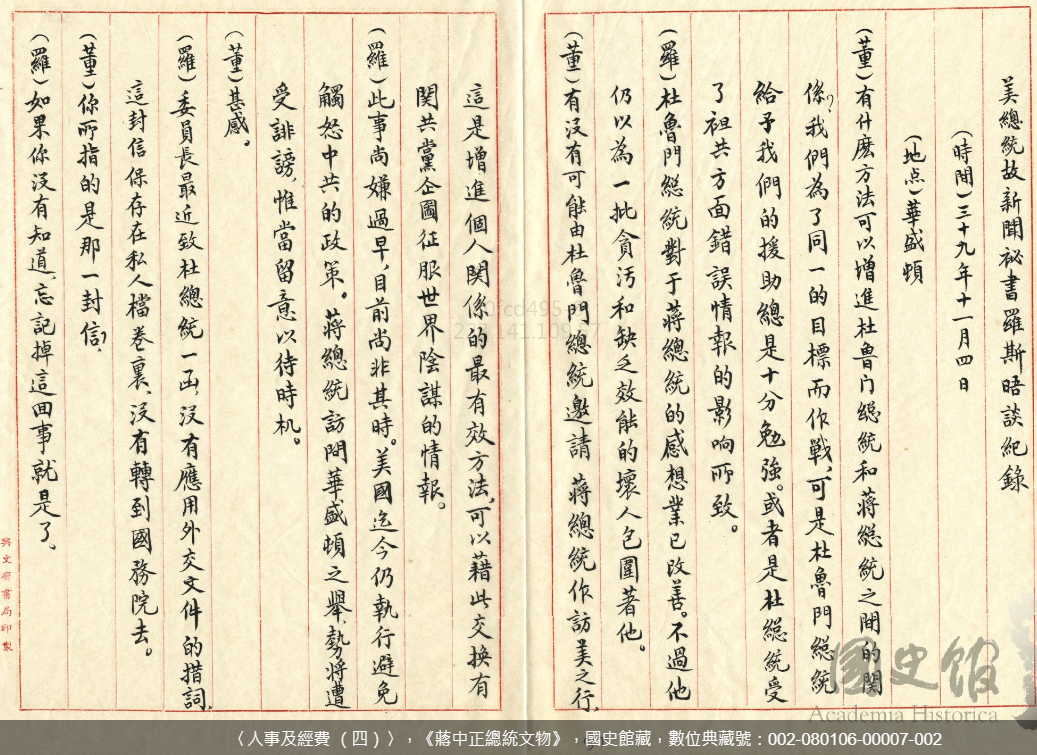 美總統故新聞祕書羅斯晤談紀錄
(時間)三十九年十一月四日
(地点)華盛頓
(董)有什麽方法可以增進杜魯门總統和蔣總統之間的関
係?我們為了同一的目標而作戰,可是杜魯門總統
給予我們的援助總是十分勉強。或者是杜總統受
了袒共方面錯誤情報的影响所致。
(羅)杜魯門總統對于蔣總統的感想業已改善。不過他
仍以為一批貪污和缺乏效能的壞人包圍著他。
(董)有没有可能由杜魯門總統邀請 蔣總統作訪美之行,
這是增進個人関係的最有效方法,可以藉此交換有
関共黨企圖征服世界陰謀的情報。
(羅)此事尚嫌過早,目前尚非其時。美國迄今仍執行避免
觸怒中共的政策。蔣總統訪問華盛頓之舉,勢將遭
受誹謗,惟當留意以待時机。
(董)甚感。
(羅)委員長最近致杜總統一函,没有應用外交文件的措詞,
這封信保存在私人檔卷裏、没有轉到國務院去。
(董)你所指的是那一封信?
(羅)如果你没有知道、忘記掉這回事就是了、
興文齋書局印製
國史館
Academia Historica
〈人事及經費（四）〉，《蔣中正總統文物》，國史館藏，數位典藏號：002-080106-00007-002